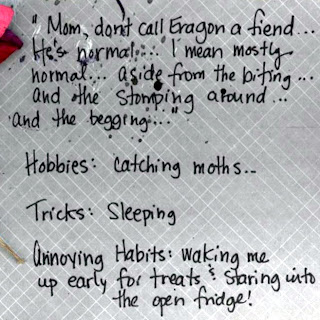 "Mom, don't call Eragon a fiend...
He's normal.... I mean mostly
normal... aside from the biting...
and the stomping around...
and the begging..."
Hobbies: catching moths...
Tricks: Sleeping
Annoying Habits: waking me
up early for treats & staring into
the open fridge!